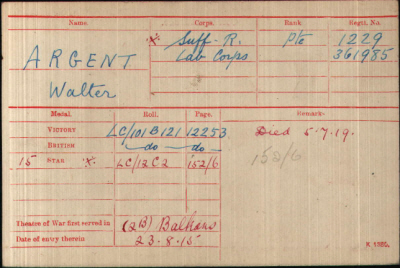 Name. Corps. Rank. Regtl. No.
ARGENT * Suff. R. Pte 1229
Walter Lab Corps 361985
Medal. Roll. Page. Remarks.
VICTORY LC/101 B121 12253 Died 5-7-19.
BRITISH do do 152/6
15 STAR * LC/12 C2 152/6
Theatre of War first served in (2B) Balkans
Date of entry therein 23.8.15
K 1380.